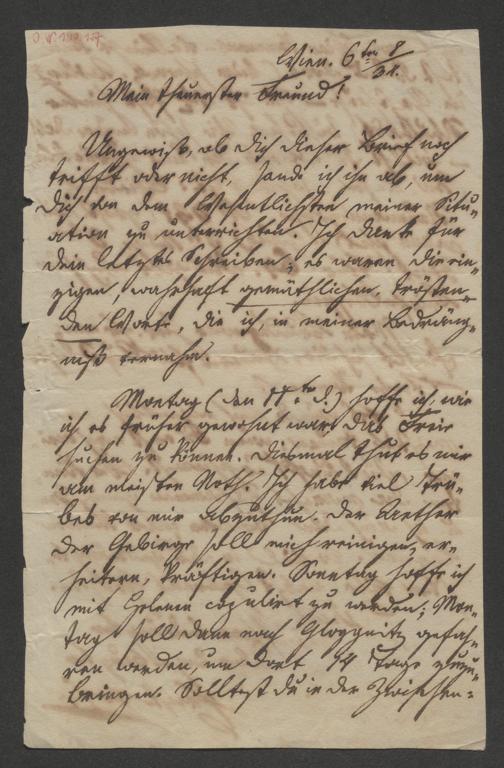 Wien. 6ten 8/31.
Mein theuerster Freund!
Ungewiß, ob dich dieser Brief noch
trifft oder nicht, sende ich ihn ab, um
dich von dem Wesentlichsten meiner Situ-
ation zu unterrichten. Ich danke für
dein letztes Schreiben; es waren die ein-
zigen, wahrhaft gemüthlichen, trösten-
den Worte, die ich, in meiner Bedräng-
niß vernahm.
Montag (den ten d.) hoffe ich, wie
ich es früher gewohnt war das Freie
suchen zu können. Diesmal thut es mir
am meisten Noth. Ich habe viel Trü-
bes von mir abzuthun. Der Aether
der Gebirge soll mich reinigen, er-
heitern, kräftigen. Sonntag hoffe ich
mit Helenen copulirt zu werden; Mon-
tag soll dann nach Gloggnitz gefah-
ren werden, um dort 14 Tage zuzu-
bringen. Solltest du in der Zwischen-